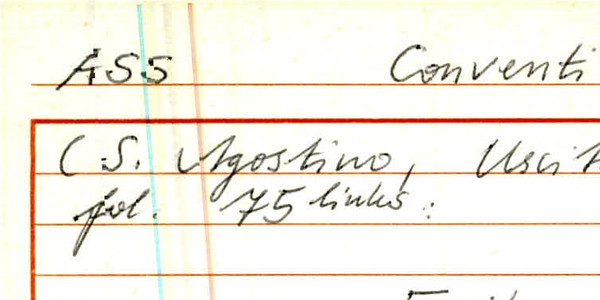 ASS Conventi
(S. Agostino, Uscit
fol. 75 links: